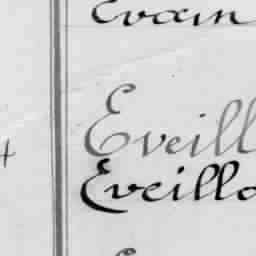 Evain
Eveill
4 Eveilla